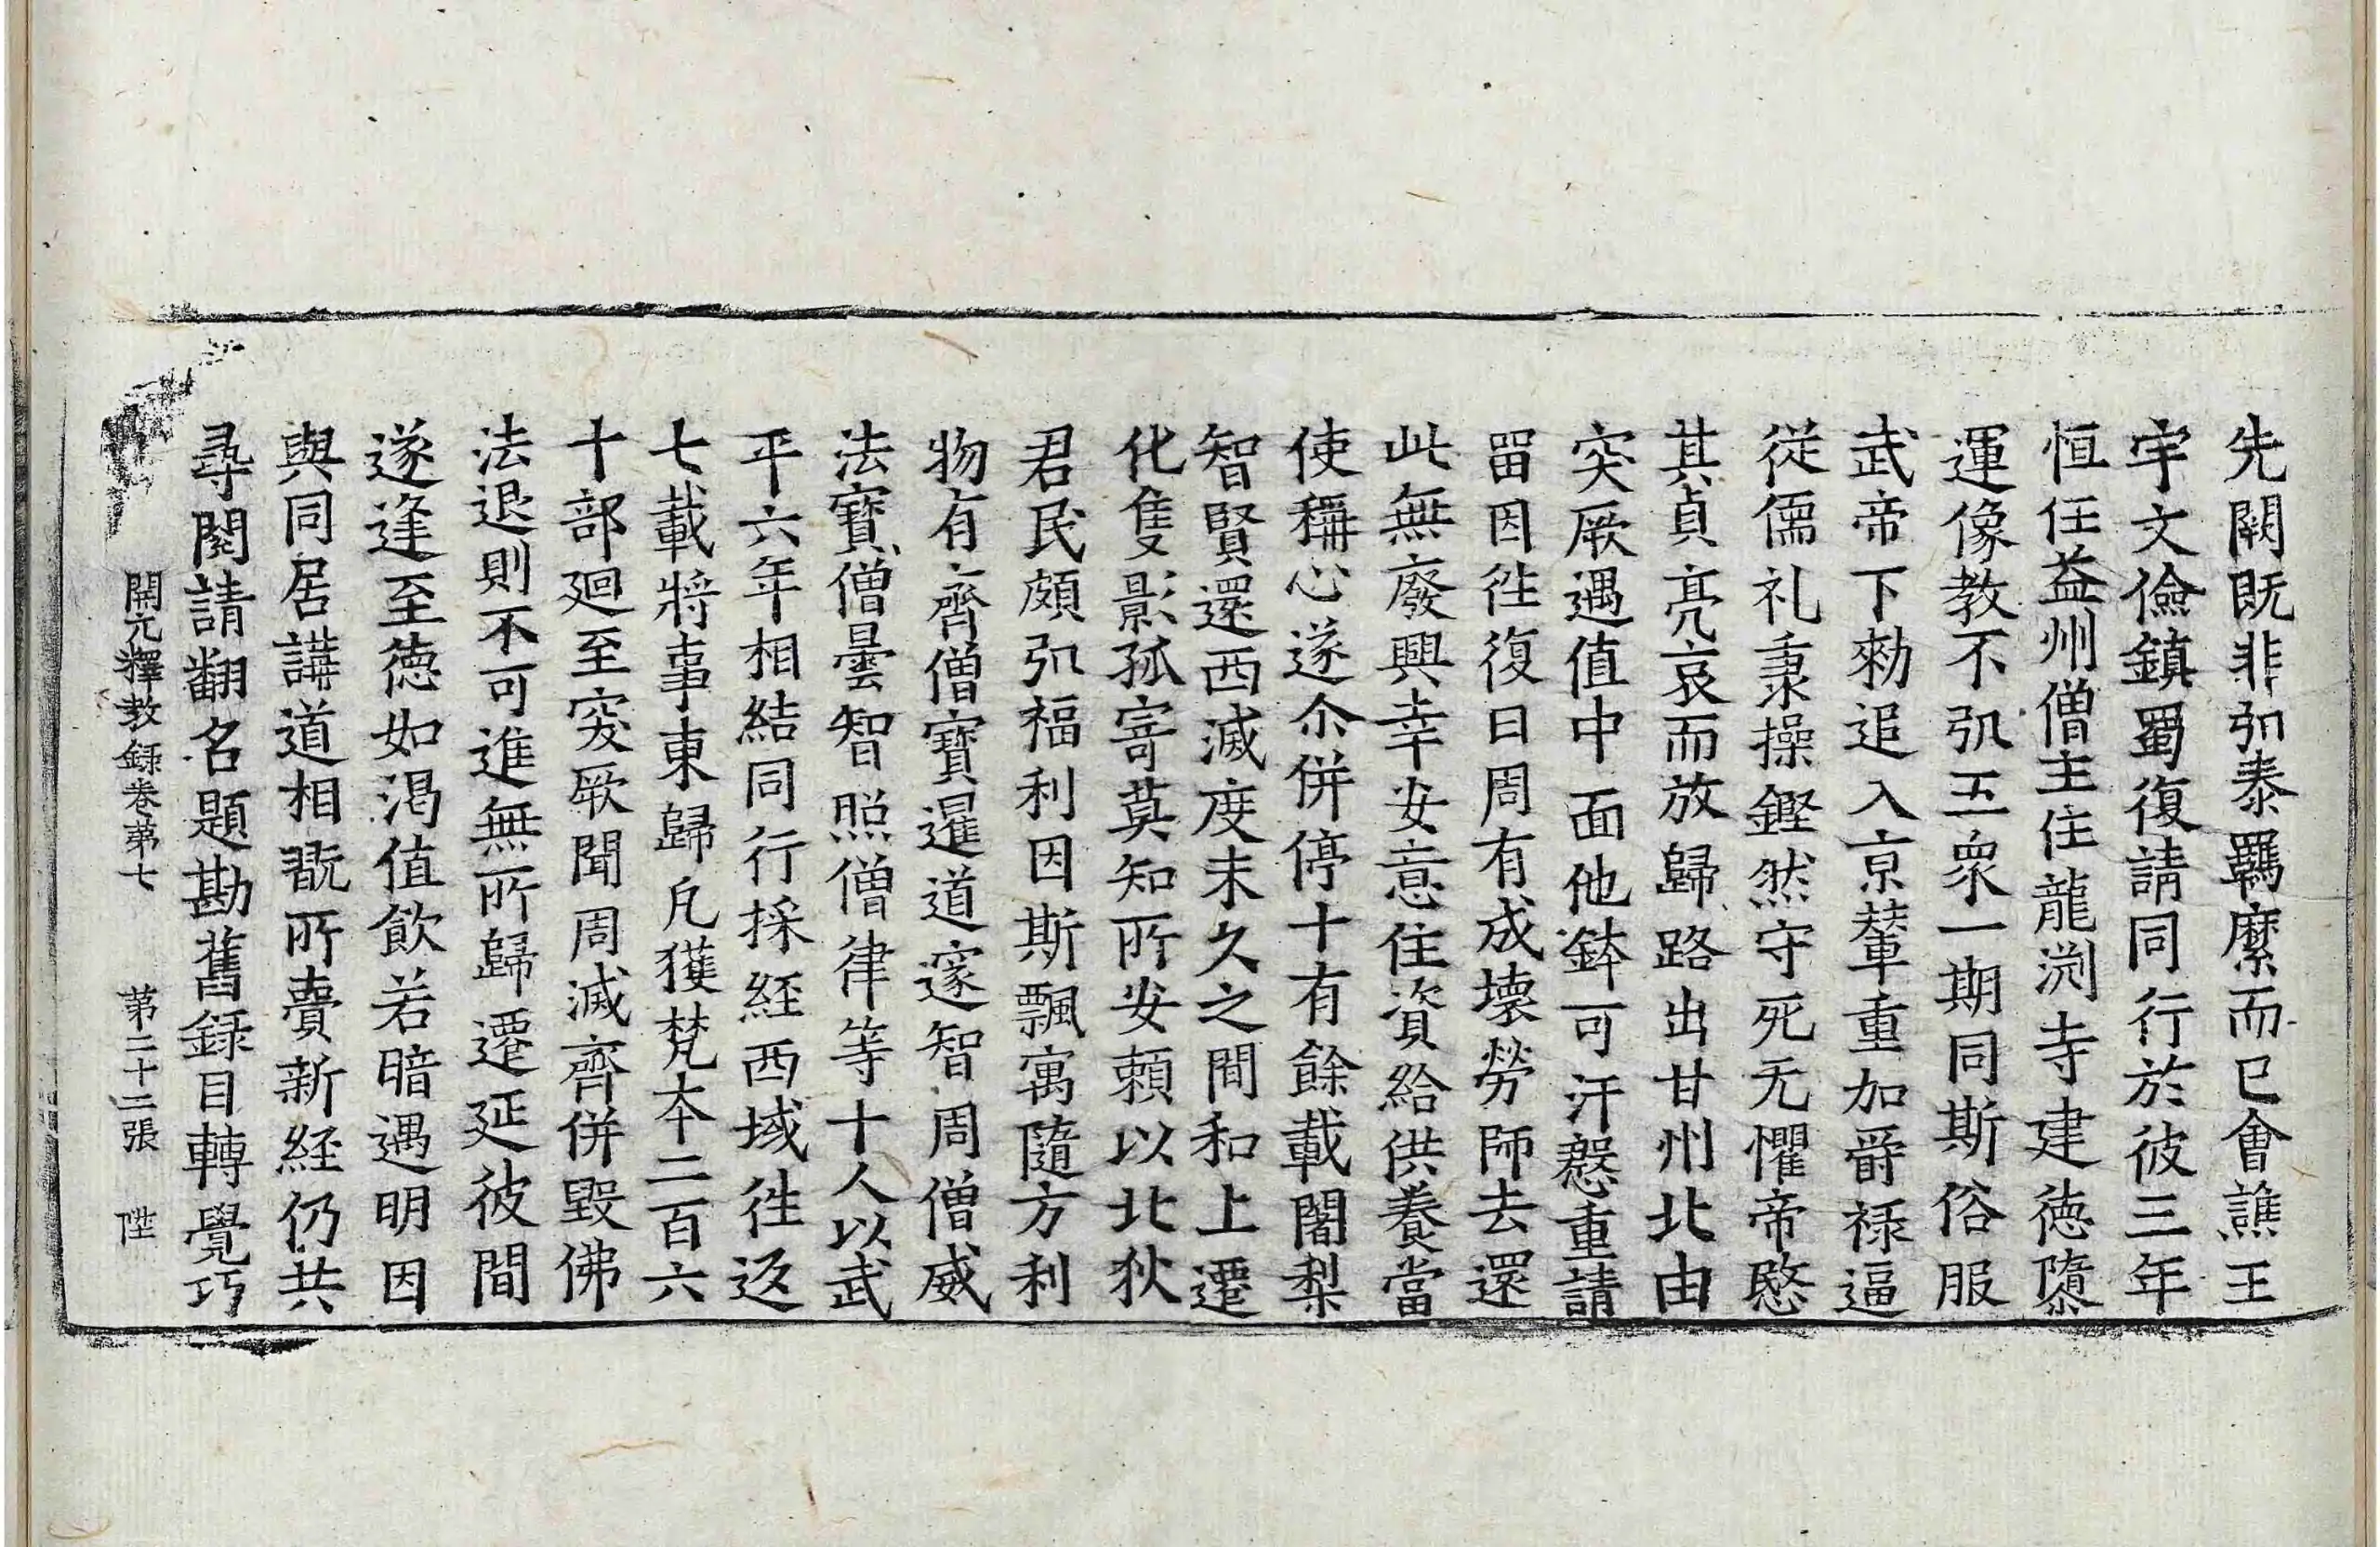 先闕既非弘泰羈縻而已會譙王
宇文儉鎮蜀復請同行於彼三年
恒任益州僧主住龍渕寺建德隳
運像教不弘五衆一期同斯俗服
武帝下勑追入京輦重加爵禄逼
從儒礼秉操鏗然守死无懼帝愍
其貞亮哀而放歸路出甘州北由
突厥遇值中面他鉢可汗慇重請
留因徃復曰周有成壞勞師去還
此無廢興幸安意住資給供養當
使稱心遂尒併停十有餘載闍梨
智賢還西滅度未久之間和上遷
化隻影孤寄莫知所安賴以北狄
君民頗弘福利因斯飄寓隨方利
物有齊僧寶暹道邃智周僧威
法寶僧曇智照僧律等十人以武
平六年相結同行採經西域徃返
七載將事東歸凡獲梵本二百六
十部迴至突厥聞周滅齊併毀佛
法退則不可進無所歸遷延彼間
遂逢至德如渴值飲若暗遇明因
與同居講道相翫所賷新経仍共
尋閱請翻名題勘舊録目轉覺巧
開元釋教録卷第七　第二十二張　陞